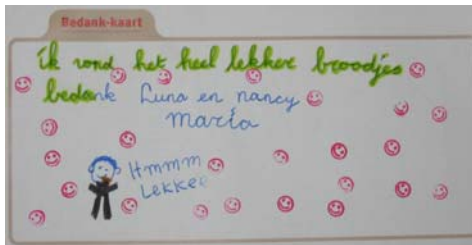 Bedank-kaart
ik vond het heel lekker broodjes
bedank Luna en nancy
maria
Hmmm
Lekker